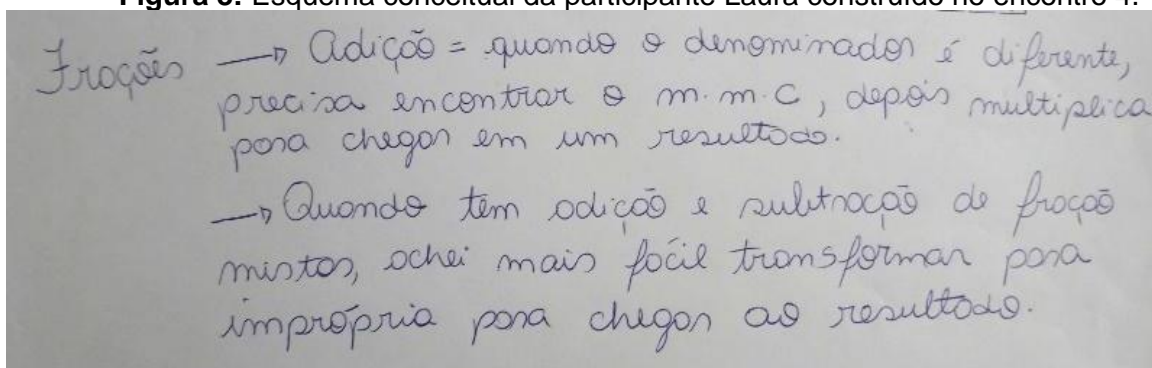 Figura 3: Esquema conceitual da participante Laura construído no encontro 4.
Frações → Adição = quando o denominador é diferente,
precisa encontrar o m.m.C, depois multiplica
para chegar em um resultado.
→ Quando tem adição e subtração de fração
mistas, achei mais fácil transformar para
imprópria para chegar ao resultado.